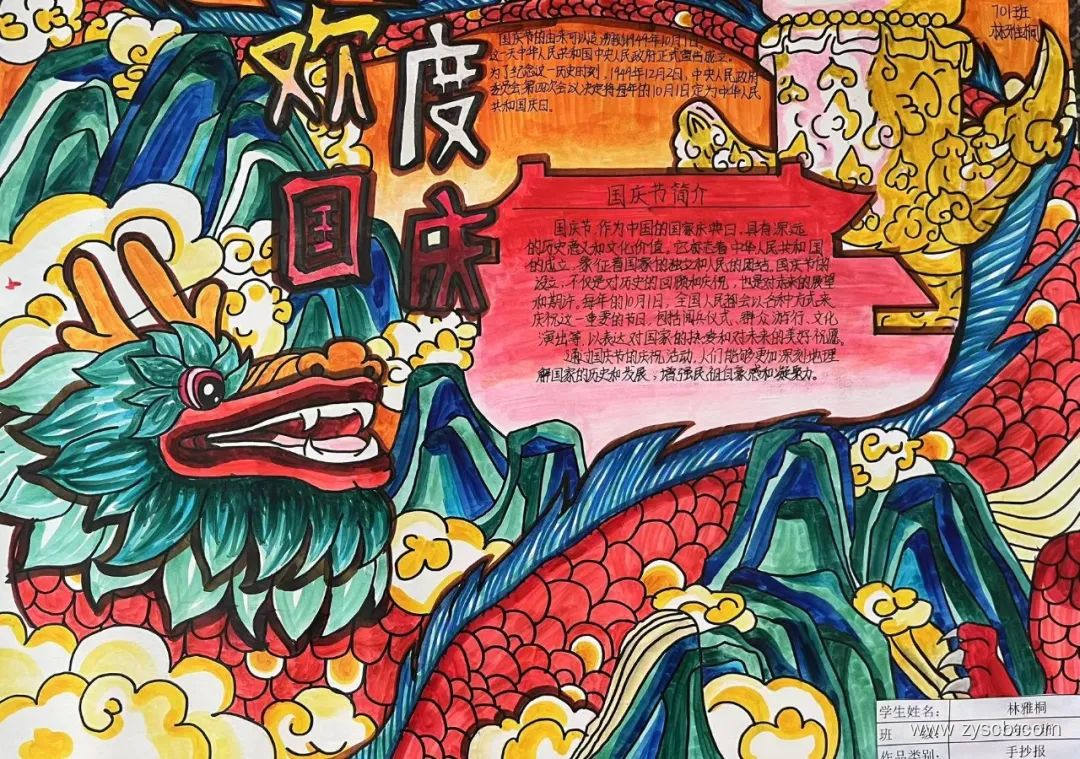 欢度
国庆
国庆节的由来可以追溯到1949年10月1日
这一天中华人民共和国中央人民政府正式宣告成立。
为了纪念这一历史时刻,1949年12月2日,中央人民政府
委员会第四次会议决定将每年的10月1日定为中华人民
共和国国庆日。
701班
林雅桐
国庆节简介
国庆节,作为中国的国家庆典日,具有深远
的历史意义和文化价值。它标志着中华人民共和国
的成立,象征着国家的独立和人民的团结。国庆节的
设立,不仅是对历史的回顾和庆祝,也是对未来的展望
和期许。每年的10月1日,全国人民都会以各种方式来
庆祝这一重要的节日,包括阅兵仪式、群众游行、文化
演出等,以表达对国家的热爱和对未来的美好祝愿。
通过国庆节的庆祝活动,人们能够更加深刻地理
解国家的历史和发展,增强民族自豪感和凝聚力。
学生姓名: 林雅桐
班 级:
作品类别: 手抄报
www.zyscb.com